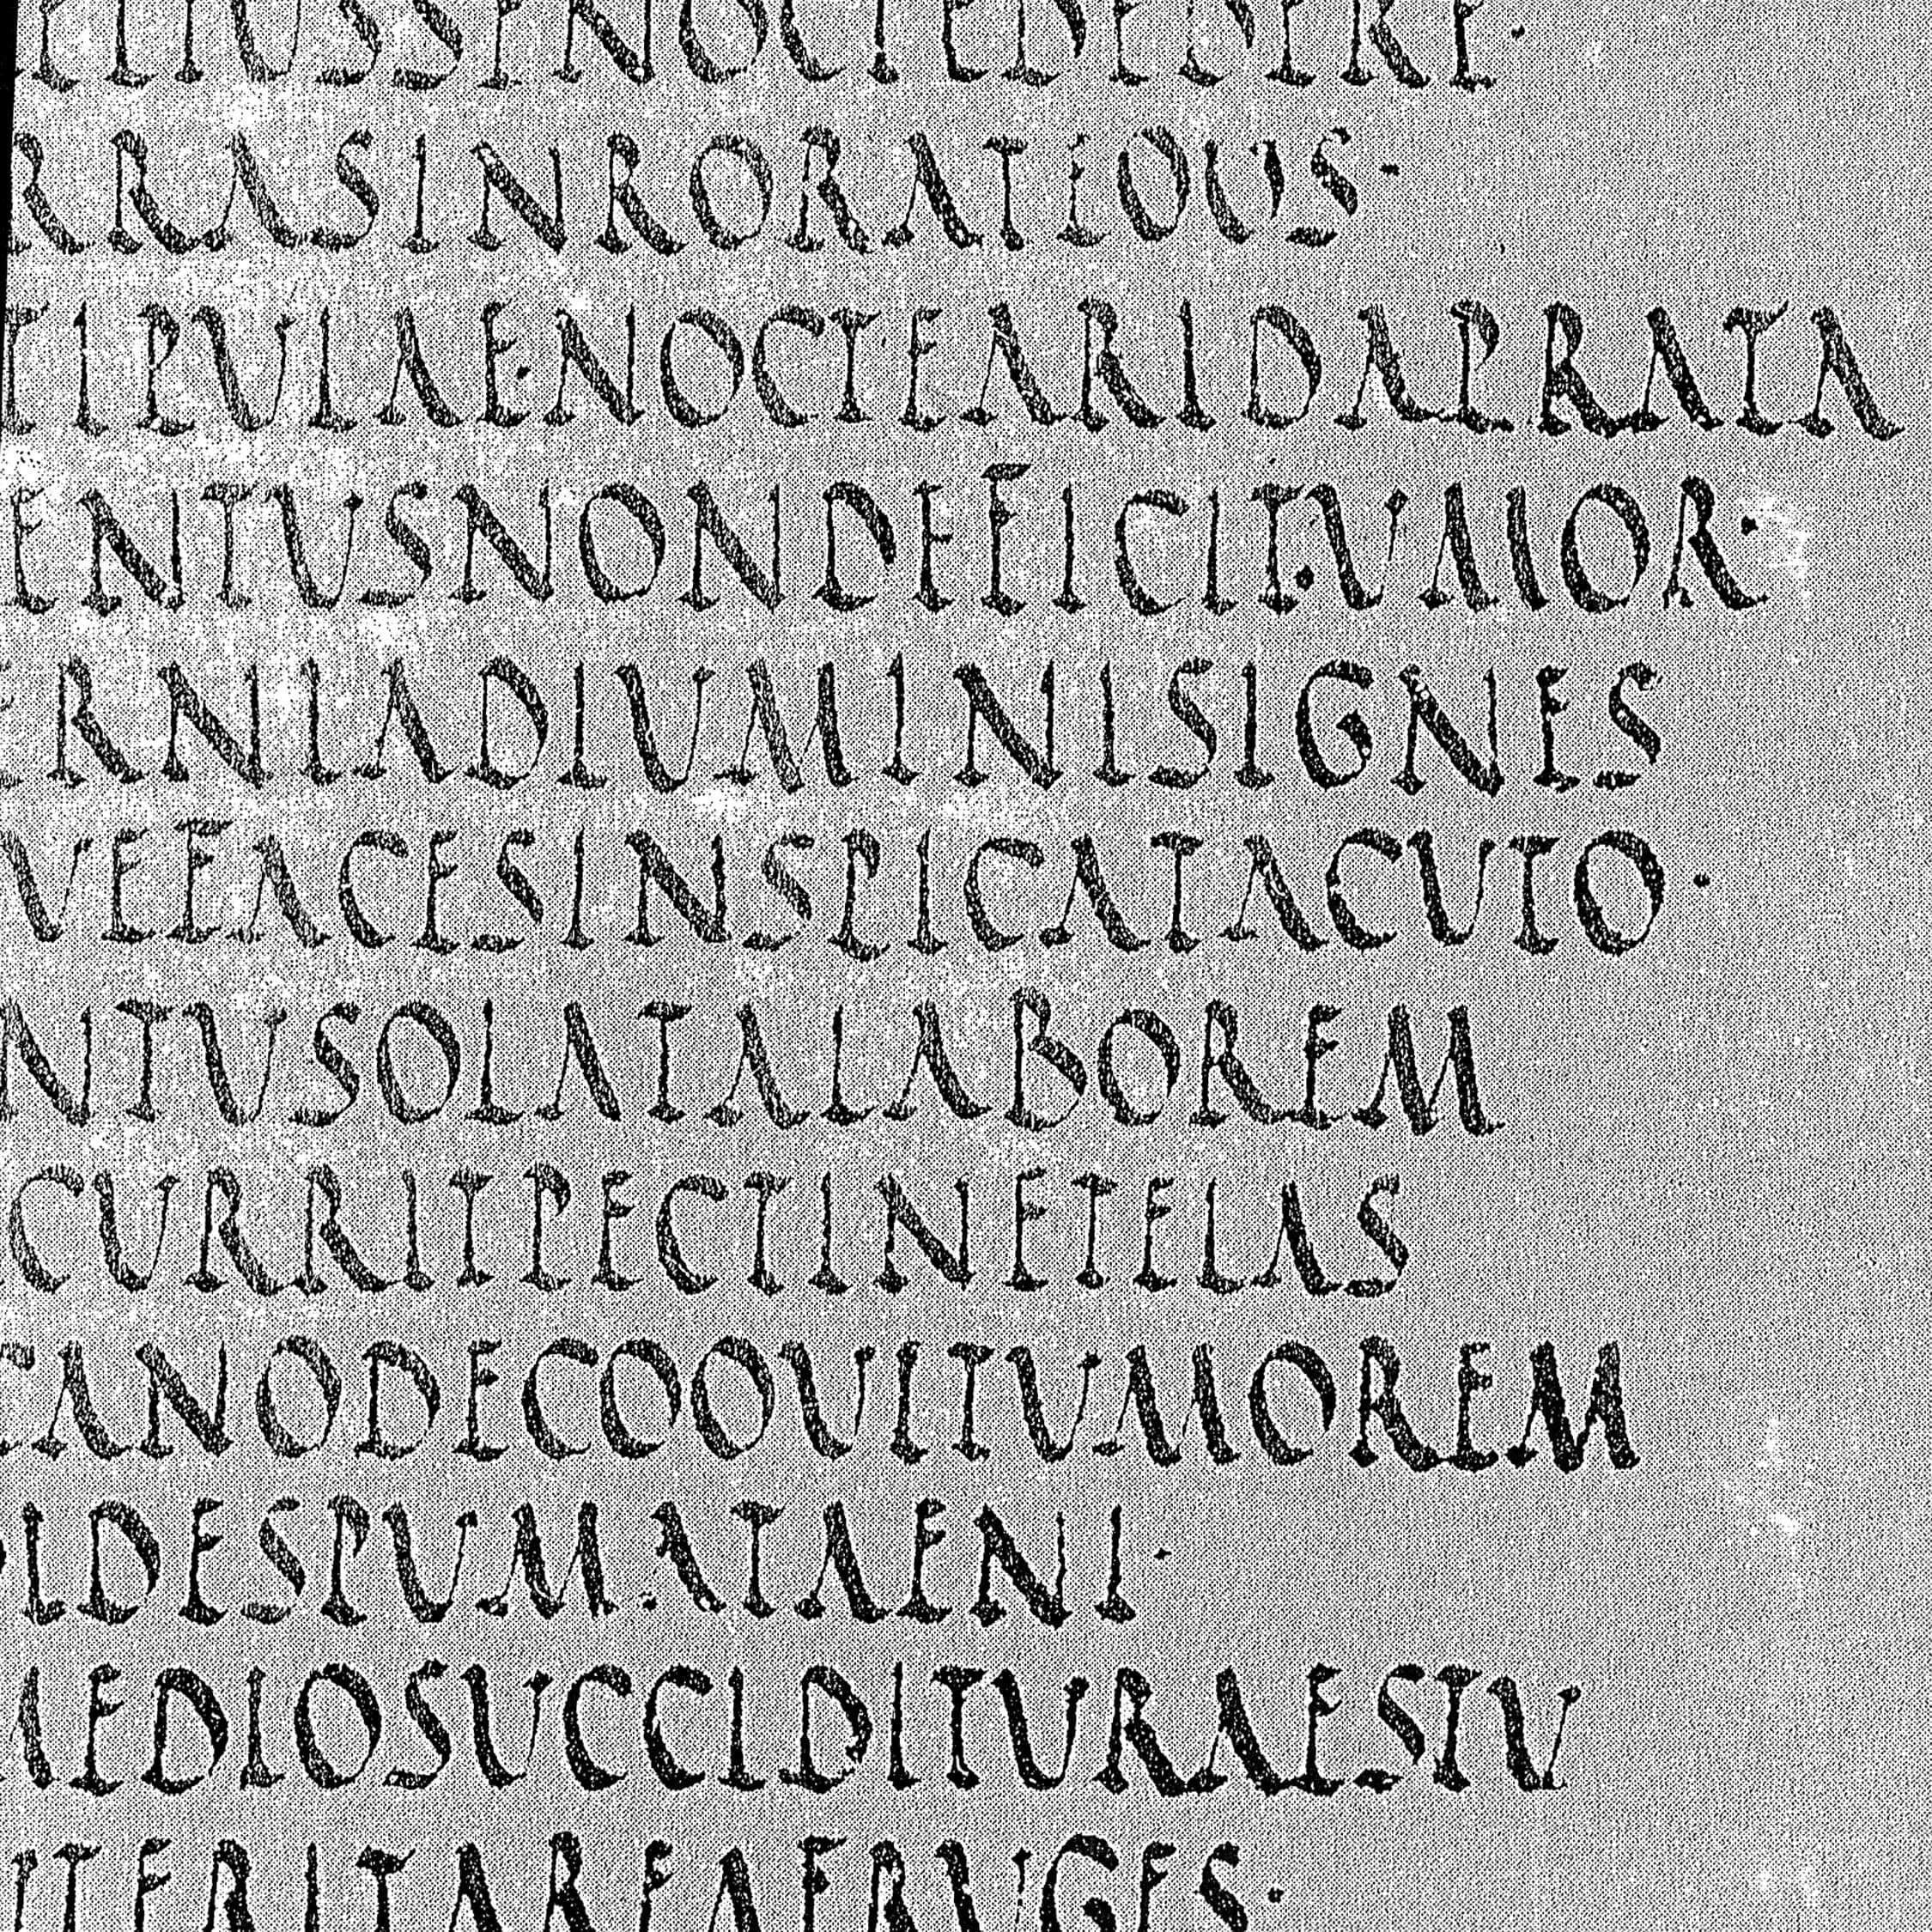 ELIUSSENOCTEDEDERE·
RRASINRORATEOUS·
TIPULAE·NOCTEARIDAPRATA
ENTUSNONDEFICIT·UMOR·
ERNIADLUMINISIGNES
VEFACESINSPICATACUTO·
NTUSOLATALABOREM
CURRITPECTINETELAS
CANODECOQUITUMOREM
IDESPUMATAENI·
MEDIOSUCCIDITURAESTU
UTERITAREAFRUGES·